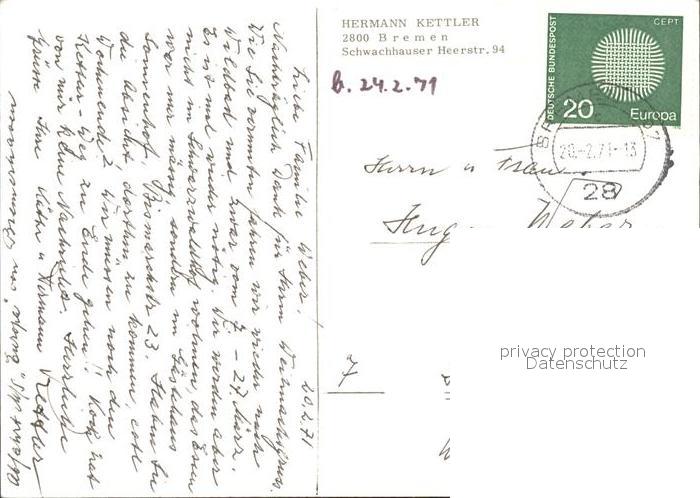 20.2.71
Liebe Familie Weber!
Nachträglich Dank für Ihren Weihnachtsgruss.
Wie Sie vermuten fahren wir wieder nach
Waldbad und zwar vom 7. - 27. März.
Es ist mal wieder nötig. Wir werden aber
nicht im Schwarzwaldhof wohnen, das Essen
war nur mässig, sondern im Gästehaus
Sonnenhof, Bismarckstr 23. Haben Sie
die Absicht dorthin zu kommen, evtl
Wochenende? Wir müssen noch den
Kettler-Weg zu Ende gehen! Koch hat
von mir keine Nachricht. Herzliche
Grüsse Ihre Käthe u Hermann Kettler
HERMANN KETTLER
2800 Bremen
Schwachhauser Heerstr. 94
b. 24.2.71
DEUTSCHE BUNDESPOST
CEPT
20
Europa
20.-2.71-13
28
Herrn u Frau
Hugo Weber
7
privacy protection
Datenschutz